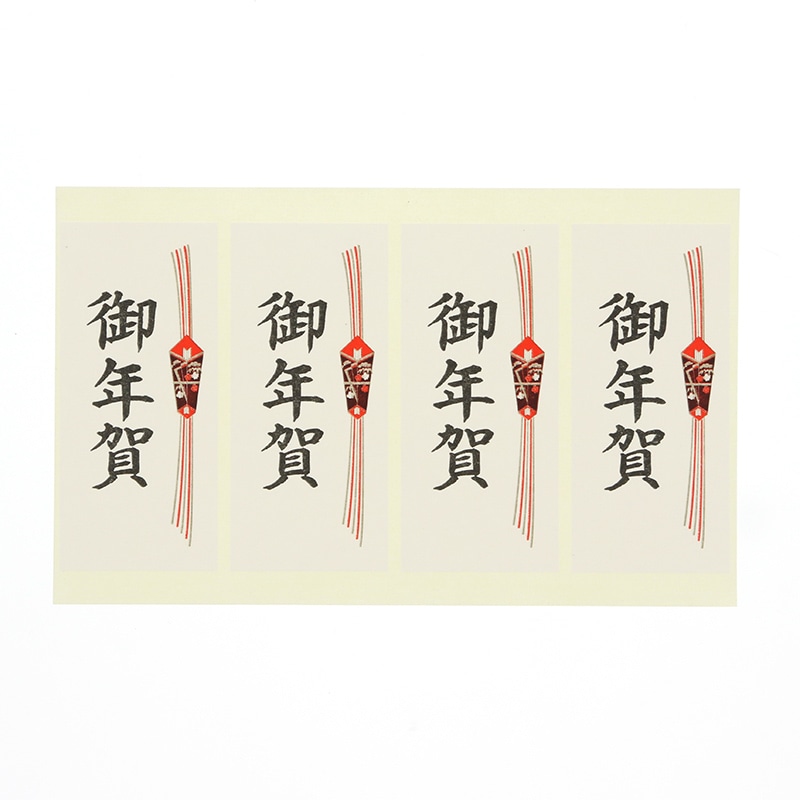 御年賀
御年賀
御年賀
御年賀